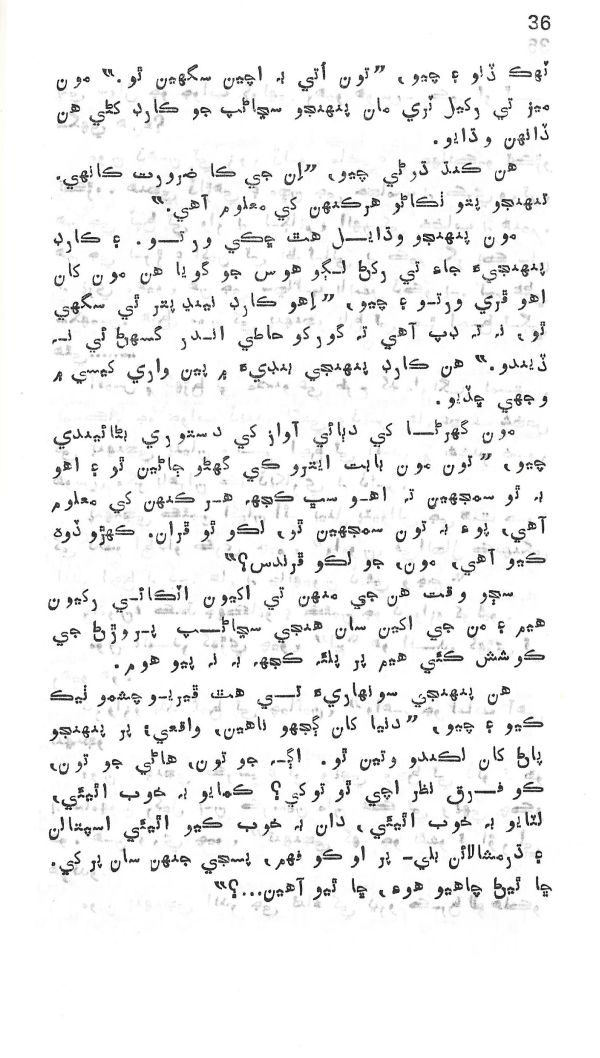 36
ٽهڪ ڏنو ۽ چيو، ”تون اُتي بہ اچين سگھين ٿو.“ مون
ميز تي رکيل ٽري مان پنهنجو سڃاڻپ جو ڪارڊ کڻي هن
ڏانهن وڌايو.
هن ڪنڌ ڌوڻي چيو، ”اِن جي ڪا ضرورت ڪانهي.
تنهنجو پتو ٺڪاڻو هرڪنهن کي معلوم آهي.“
مون پنهنجو وڌايل هٿ ڇڪي ورتو. ۽ ڪارڊ
پنهنجيءَ جاءِ تي رکڻ لڳو هوس جو گويا هن مون کان
اهو ڦري ورتو ۽ چيو، ”اِهو ڪارڊ نيٺ پٿر ٿي سگھي
ٿو، نہ تہ ڊپ آهي تہ گورکو حاطي اندر گھسڻ ئي نہ
ڏيندو.“ هن ڪارڊ پنهنجي بنڊيءَ ۾ پين واري کيسي ۾
وجهي ڇڏيو.
مون گهرڻا کي دٻائي آواز کي دستوري بڻائيندي
چيو، ”تون مون بابت ايترو ڪي گھڻو ڄاڻين ٿو ۽ اهو
بہ ٿو سمجهين تہ اهو سڀ ڪجهہ هر ڪنهن کي معلوم
آهي، پوءِ بہ تون سمجهين ٿو، لڪو ٿو ڦران. ڪهڙو ڏوهہ
ڪيو آهي، مون، جو لڪو ڦرندس؟“
سڄو وقت هن جي منهن تي اکيون اٽڪائي رکيون
هيم ۽ من جي اکين سان هنجي سڃاڻپ پروڙڻ جي
ڪوشش ڪئي هيم پر پلئہ ڪجهہ بہ نہ پيو هوم.
هن پنهنجي سونهاريءَ تي هٿ ڦيريو چشمو ٺيڪ
ڪيو ۽ چيو، ”دنيا کان ڳجهو ناهين، واقعي؛ پر پنهنجو
پاڻ کان لڪندو وتين ٿو. اڳہ جو تون، هاڻي جو تون،
ڪو فرق نظر اچي ٿو توکي؟ ڪمايو بہ خوب اٿيئي،
لٽايو بہ خوب اٿيئي، دان بہ خوب ڪيو اٿيئي اسپتالن
۽ ڌرمشالائن بلي۔ پر او ڪو فهم، پسجي جنهن سان پر کي.
ڇا ٿيڻ چاهيو هوءِ، ڇا ٿيو آهين...؟“